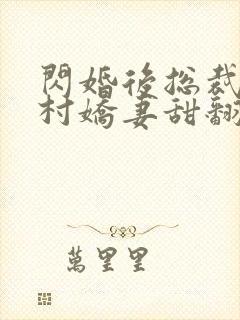 閃婚後總裁
村嬌妻甜翻
萬里里